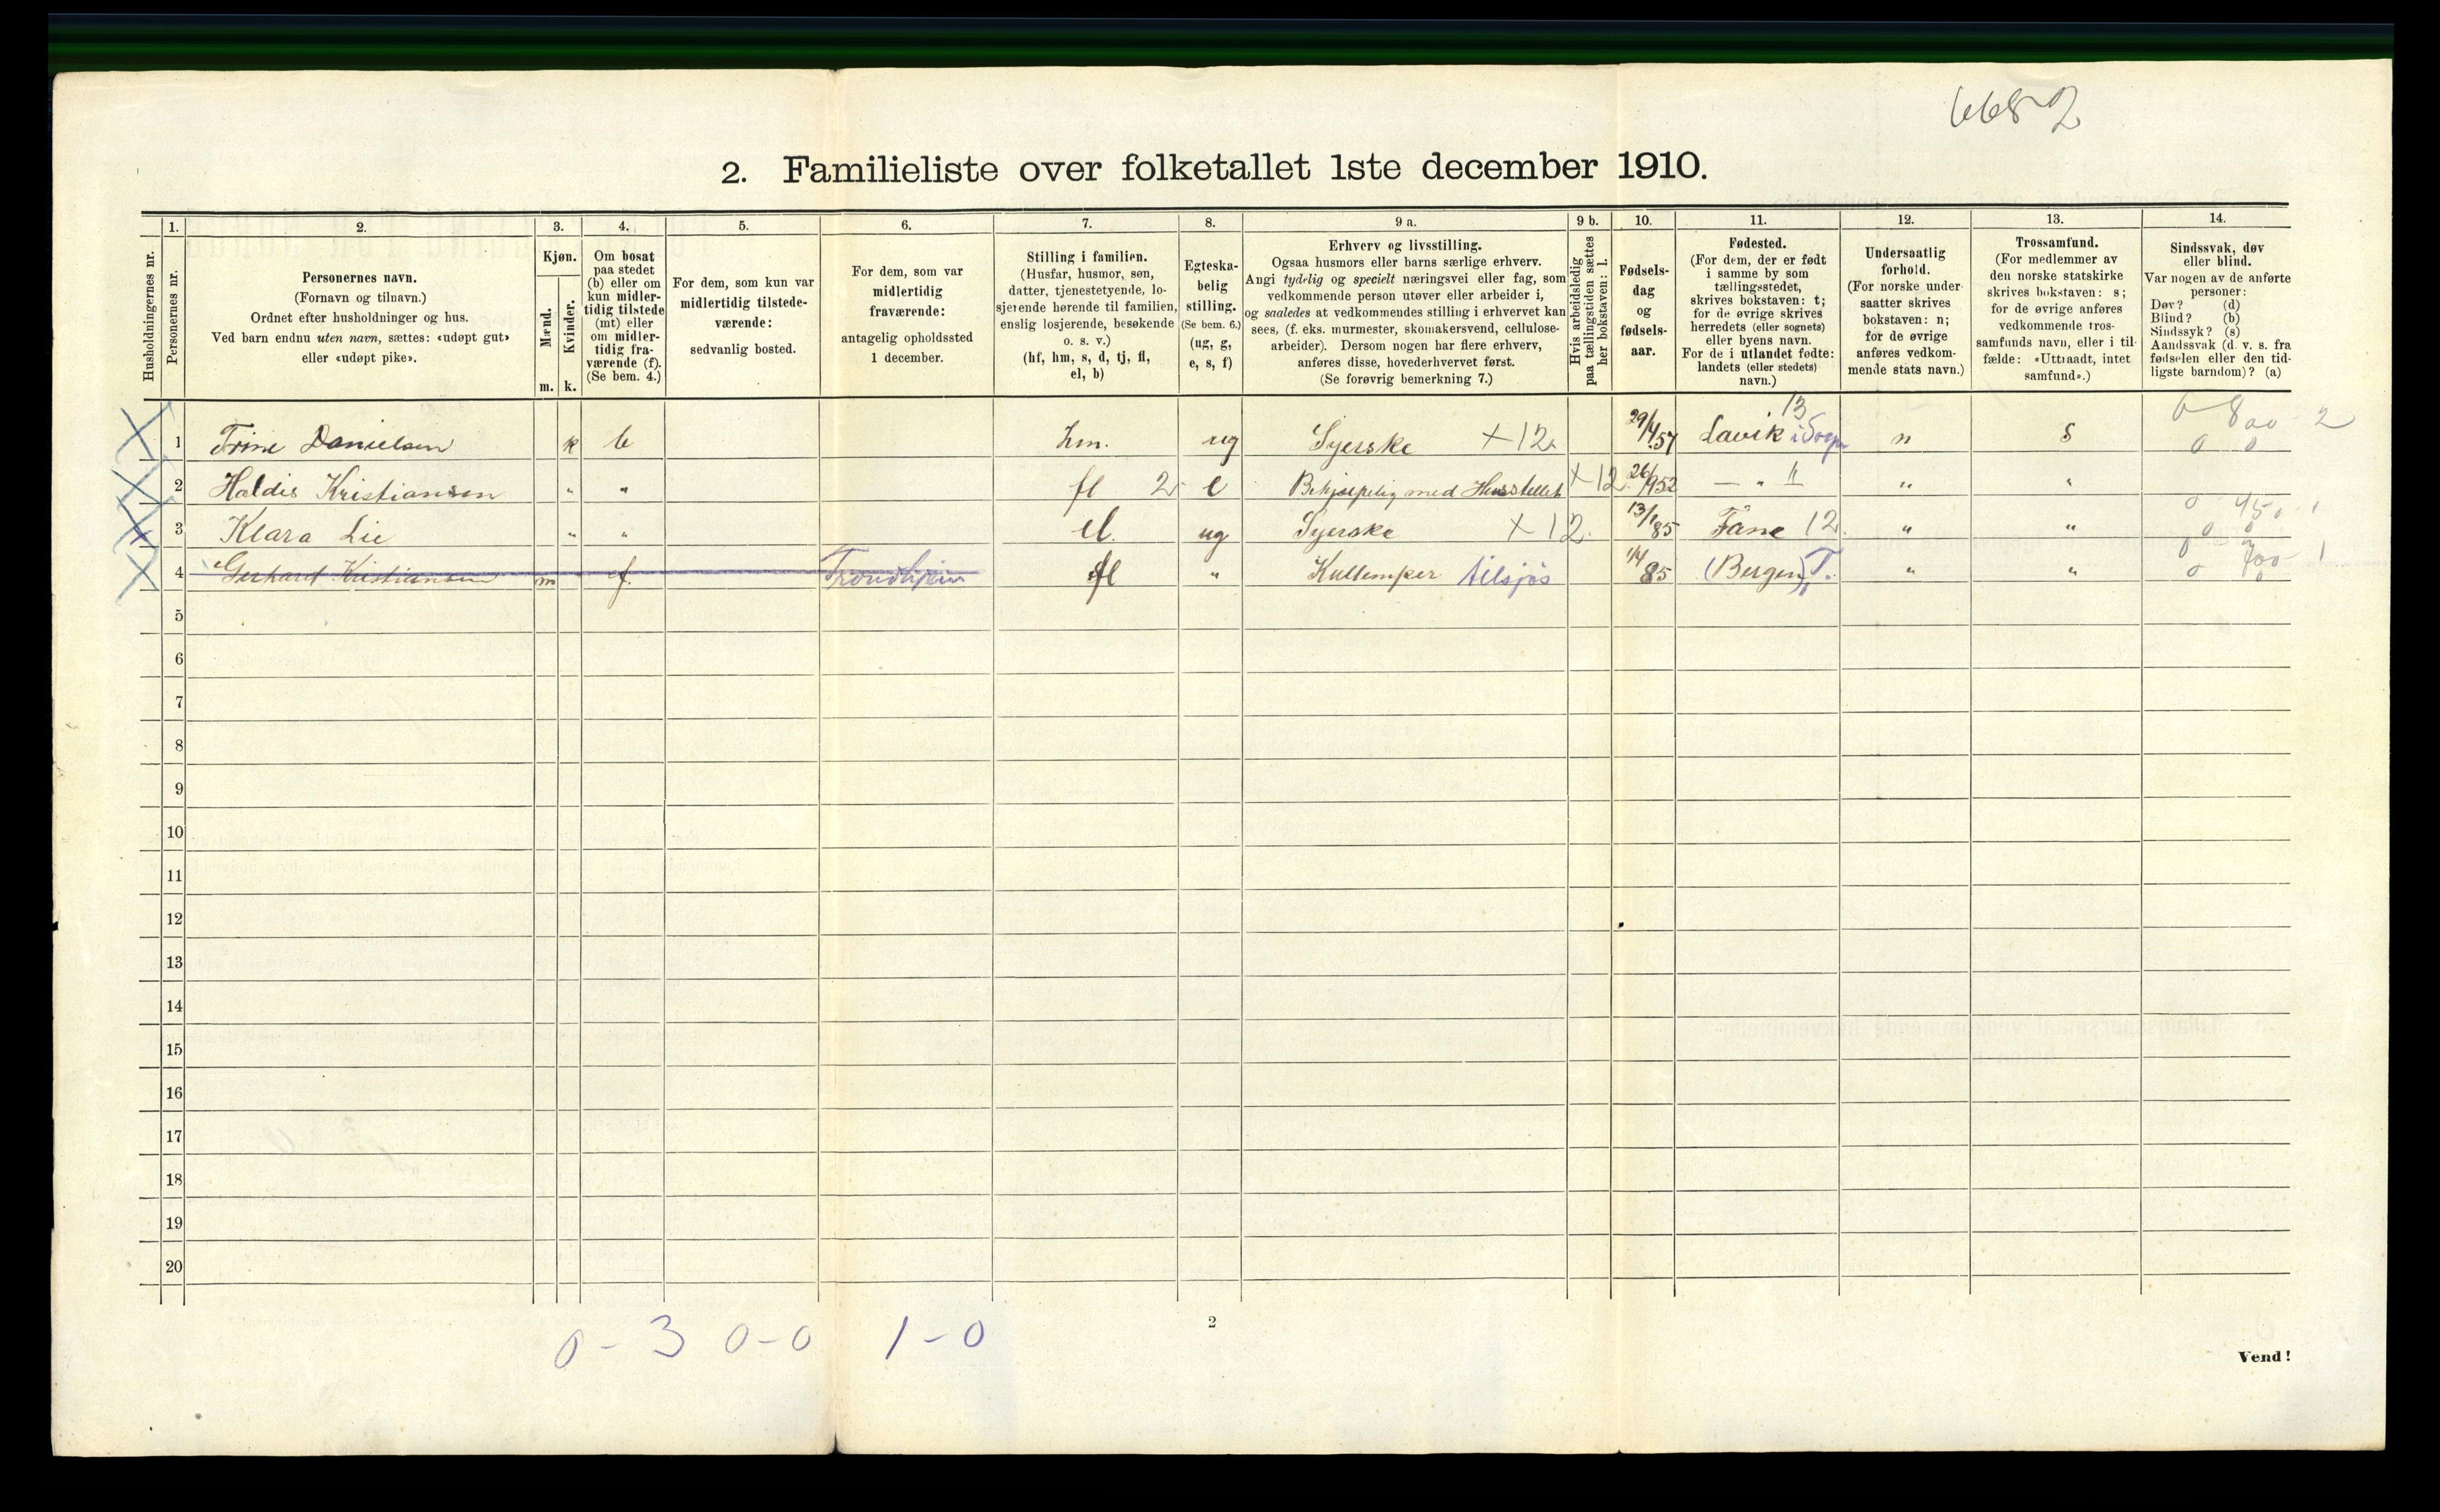 6682
2. Familieliste over folketallet 1ste december 1910.
Husholdningernes nr.
1. Personernes nr.
2.
Personernes navn.
(Fornavn og tilnavn.)
Ordnet efter husholdninger og hus.
Ved barn endnu uten navn, sættes: «udøpt gut»
eller «udøpt pike».
3.
Kjøn.
Mænd. Kvinder.
m. k.
4.
Om bosat
paa stedet
(b) eller om
kun midler-
tidig tilstede
(mt) eller
om midler-
tidig fra-
værende (f).
(Se bem. 4.)
5.
For dem, som kun var
midlertidig tilstede-
værende:
sedvanlig bosted.
6.
For dem, som var
midlertidig
fraværende:
antagelig opholdssted
1 december.
7.
Stilling i familien.
(Husfar, husmor, søn,
datter, tjenestetyende, lo-
sjerende hørende til familien,
enslig losjerende, besøkende
o. s. v.)
(hf, hm, s, d, tj, fl,
el, b)
8.
Egteska-
belig
stilling.
(Se bem. 6.)
(ug, g,
e, s, f)
9 a.
Erhverv og livsstilling.
Ogsaa husmors eller barns særlige erhverv.
Angi tydelig og specielt næringsvei eller fag, som
vedkommende person utøver eller arbeider i,
og saaledes at vedkommendes stilling i erhvervet kan
sees, (f. eks. murmester, skomakersvend, cellulose-
arbeider). Dersom nogen har flere erhverv,
anføres disse, hovederhvervet først.
(Se forøvrig bemerkning 7.)
9 b.
Hvis arbeidsledig
paa tællingstiden sættes
her bokstaven: l.
10.
Fødsels-
dag
og
fødsels-
aar.
11.
Fødested.
(For dem, der er født
i samme by som
tællingsstedet,
skrives bokstaven: t;
for de øvrige skrives
herredets (eller sognets)
eller byens navn.
For de i utlandet fødte:
landets (eller stedets)
navn.)
12.
Undersaatlig
forhold.
(For norske under-
saatter skrives
bokstaven: n;
for de øvrige
anføres vedkom-
mende stats navn.)
13.
Trossamfund.
(For medlemmer av
den norske statskirke
skrives bokstaven: s;
for de øvrige anføres
vedkommende tros-
samfunds navn, eller i til-
fælde: «Uttraadt, intet
samfund».)
14.
Sindssvak, døv
eller blind.
Var nogen av de anførte
personer:
Døv? (d)
Blind? (b)
Sindssyk? (s)
Aandssvak (d. v. s. fra
fødselen eller den tid-
ligste barndom)? (a)
1 Trine Danielsen k b hm. ug Syerske X 12 29/4 57 Lavik i Sogn 13 n s 0 800 2 0 0
2 Haldis Kristiansen " " fl 2 e Behjælpelig med Husstellet X 12 26/9 52 — " " " "
3 Klara Lie " " el. ug Syerske X 12 13/1 85 Fane 12 " " 0 450 1 0 0
4 Gerhard Kristiansen m f. Trondhjem fl " Kullemper tilsjøs 1/4 85 (Bergen) T. " " 0 700 1 0 0
5
6
7
8
9
10
11
12
13
14
15
16
17
18
19
20
0 - 3 0 - 0 1 - 0
2
Vend!